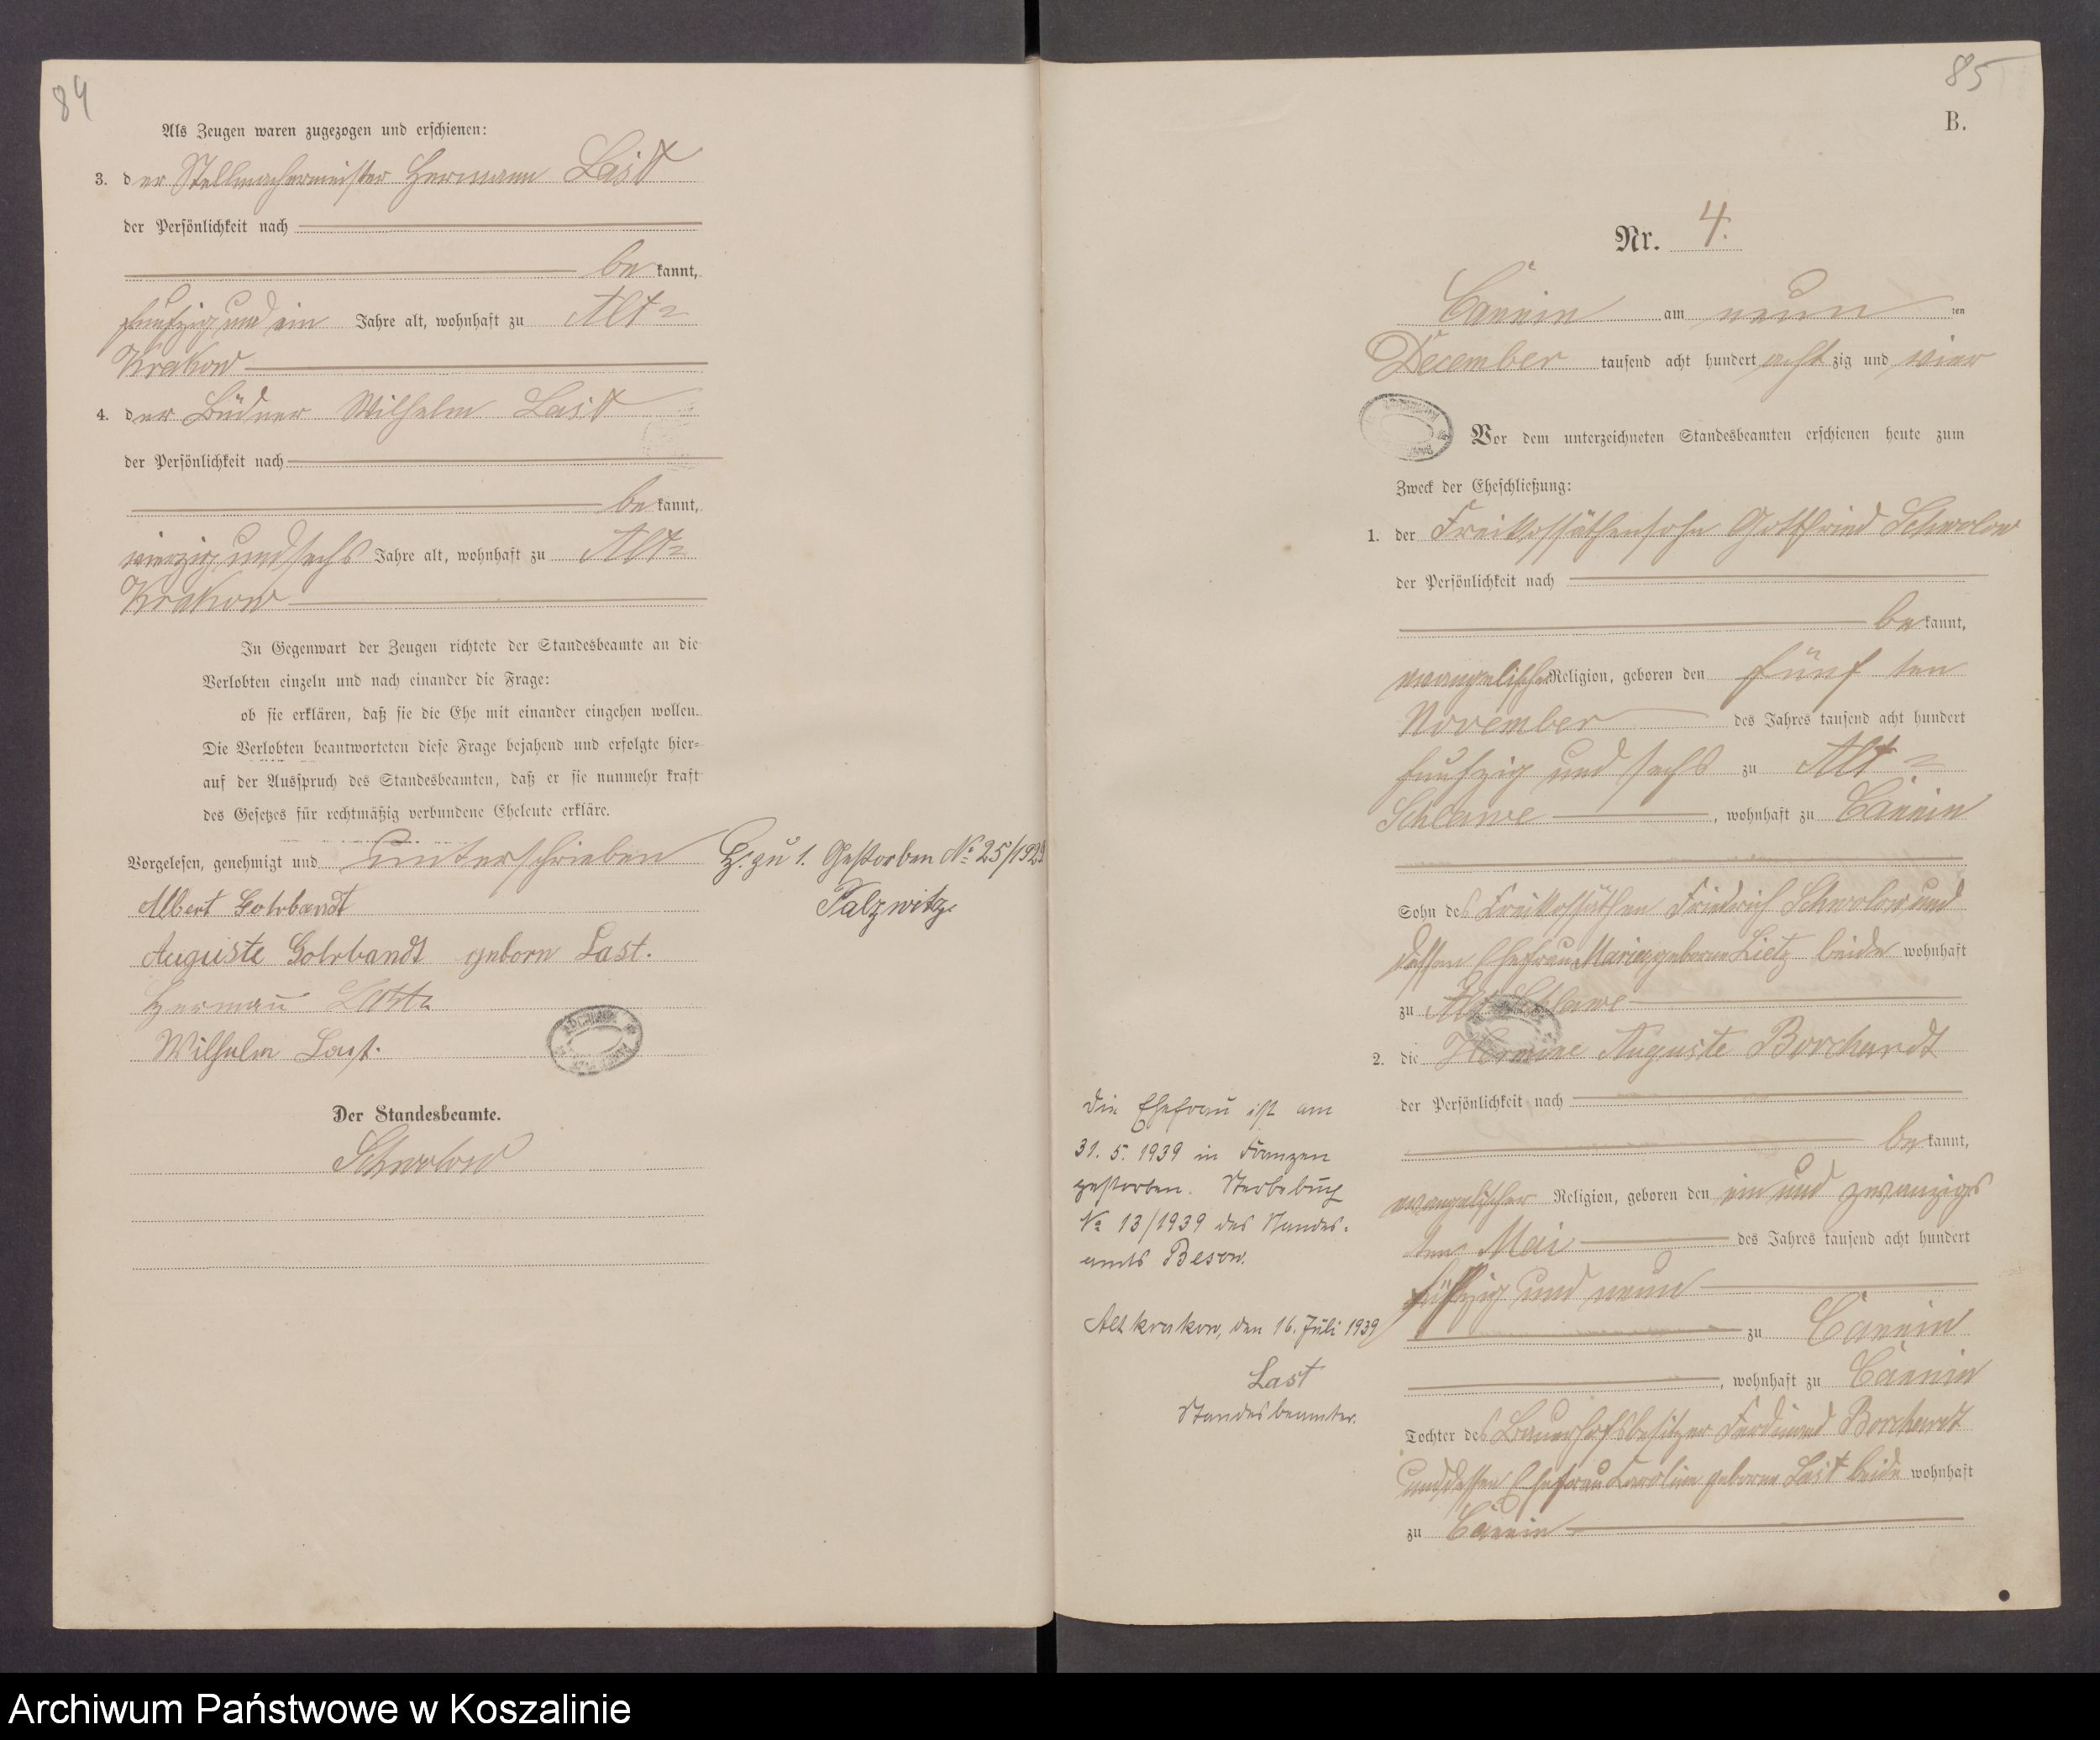 84
Als Zeugen waren zugezogen und erschienen:
3. der Stellmachermeister Hermann Last
der Persönlichkeit nach
be kannt,
funfzig und ein Jahre alt, wohnhaft zu Alt-
Krakow
4. der Büdner Wilhelm Last
der Persönlichkeit nach
be kannt,
vierzig und sechs Jahre alt, wohnhaft zu Alt-
Krakow
In Gegenwart der Zeugen richtete der Standesbeamte an die
Verlobten einzeln und nach einander die Frage:
ob sie erklären, daß sie die Ehe mit einander eingehen wollen.
Die Verlobten beantworteten diese Frage bejahend und erfolgte hier-
auf der Ausspruch des Standesbeamten, daß er sie nunmehr kraft
des Gesetzes für rechtmäßig verbundene Eheleute erkläre.
Vorgelesen, genehmigt und unterschrieben
Albert Gohrbandt
Auguste Gohrbandt geborn Last.
Hermann Last
Wilhelm Last.
Der Standesbeamte.
Schwolow
H. zu 1. Gestorben No 25/192
Palzwitz.
85
B.
Nr. 4.
Cannin am neun ten
December tausend acht hundert acht zig und vier
Vor dem unterzeichneten Standesbeamten erschienen heute zum
Zweck der Eheschließung:
1. der Freikossäthensohn Gottfried Schwolow
der Persönlichkeit nach
be kannt,
evangelischer Religion, geboren den fünf ten
November des Jahres tausend acht hundert
funfzig und sechs zu Alt-
Schlawe, wohnhaft zu Cannin
Sohn des Freikossäthen Friedrich Schwolow und
dessen Ehefrau Marie geborne Lietz beide wohnhaft
zu Alt Schlawe
2. die Hermine Auguste Borchardt
der Persönlichkeit nach
be kannt,
evangelischer Religion, geboren den ein und zwanzigs
ten Mai des Jahres tausend acht hundert
fünfzig und neun
zu Cannin
, wohnhaft zu Cannin
Tochter des Bauerhofsbesitzer Ferdinand Borchardt
und dessen Ehefrau Caroline geborne Last beide wohnhaft
zu Cannin
Die Ehefrau ist am
31. 5. 1939 in Franzen
gestorben. Sterbebuch
No 13/1939 des Standes-
amts Besow.
Alt krakow, den 16. Juli 1939
Last
Standesbeamter.
Archiwum Państwowe w Koszalinie